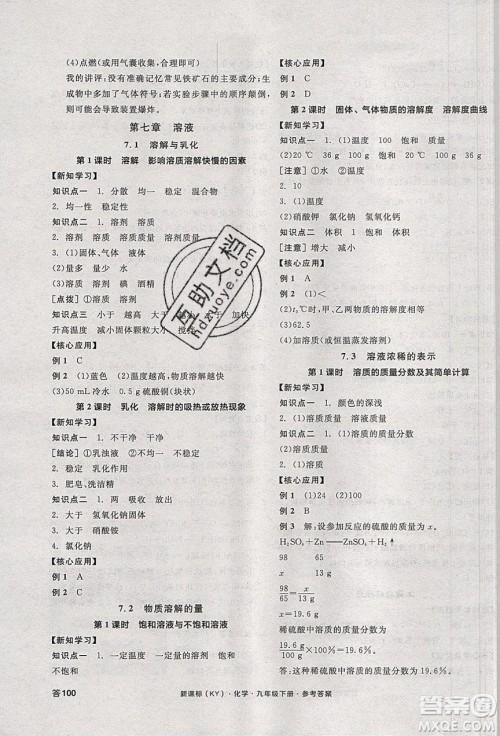 (4)点燃(或用气囊收集，合理即可)
我的讲评：没有准确记忆常见铁矿石的主要成分，忽略
生成物中多了气体符号；一氧化碳还原氧化铁的
实验步骤顺序颠倒，
可能会导致装置爆炸。
第七章 溶液
7.1 溶解与乳化
第1课时 溶解 影响溶质溶解快慢的因素
【新知学习】
知识点一 1. 分散 均一 稳定 混合物
2. 均一性 稳定
知识点二 1. 溶剂 溶质
2. 溶剂 溶质 溶质质量 溶剂质量
3. (1)固体、气体 液体
(2)质量 量多
(3)水 溶质溶剂 碘 酒精
[点拨] ①溶剂
知识点三 小于 越高 大于 越大 大于 越小 加快
升高温度 减小固体颗粒大小 搅拌
【核心应用】
例1 C
例2 (1)蓝色 (2)温度越高，物质溶解越快
(3)50 mL冷水 0.5 g硫酸铜(块状)
第2课时 乳化 溶解时的吸热或放热现象
【新知学习】
知识点一 1. 不干净 干净
[结论] ①乳浊液 ②乳化
3. 肥皂、洗洁精
知识点二 1. 两 吸收 放出
2. 大于 氢氧化钠固体
3. 小于 硝酸铵
4. 氯化钠
【核心应用】
例1 D
例2 D
7.2 物质溶解的量
第1课时 饱和溶液与不饱和溶液
【新知学习】
知识点一 1. 一定温度 一定量 一定量的溶剂
不饱和 饱和
答100
【核心应用】
例1 C
例2 D
第2课时 固体、气体物质的溶解度 溶解度曲线
【新知学习】
知识点一 1. (1)温度 100 溶质
(2)20℃ 36 g 100 g 20℃ 36 g 100 g
[注意] ①温度 ②100 ③饱和 ④克
3. (1)温度
(2)硝酸钾 氯化钠 氢氧化钙
知识点二 体积 1 体积 饱和 体积
[注意] 增大 减小
【核心应用】
例1 A
例2 (1)<
(2)t₂℃时，甲、乙两物质的溶解度相等
(3)62.5
(4)加溶质(或恒温蒸发溶剂)
7.3 溶液浓稀的表示
第1课时 溶质的质量分数及其简单计算
【新知学习】
知识点一 1. 颜色的深浅
2. (1)溶质质量 溶液质量
(2)溶液质量 溶质的质量分数
【核心应用】
例1 (1)24 (2)100
例2 C
例3 解：设参加反应的硫酸的质量为x。
H₂SO₄+Zn══ZnSO₄+H₂↑
98 65
x 13 g
98/65=x/13 g
x=19.6 g
稀硫酸中溶质的质量分数为
19.6 g/100 g×100%=19.6%
答：这种稀硫酸中溶质的质量分数为19.6%。
新课标(KY)·化学·九年级下册·参考答案
互助文档
hdzuoye.com
答案圈